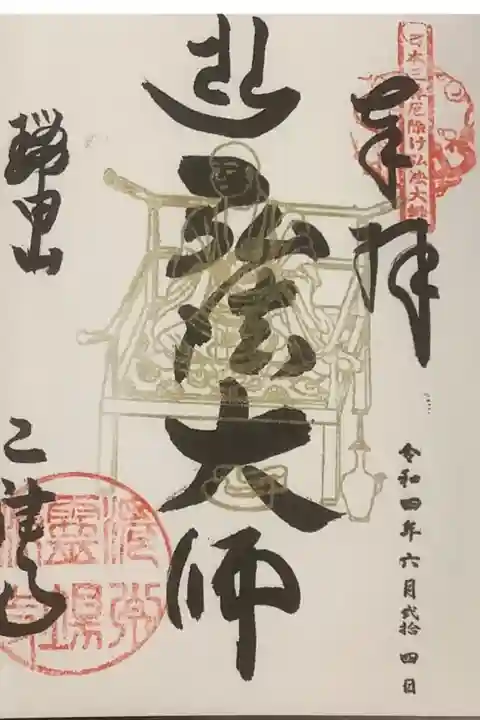 奉拝
日本三躰厄除け弘法大師
令和四年六月弐拾四日
弘法大師
瑞甲山
乙津寺
霊場